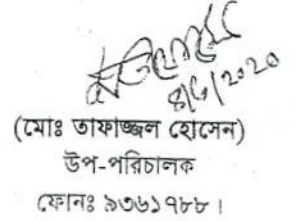 ৪/৬/২০২০
(মোঃ তাফাজ্জল হোসেন)
উপ-পরিচালক
ফোনঃ ৯৩৬১৭৮৮।